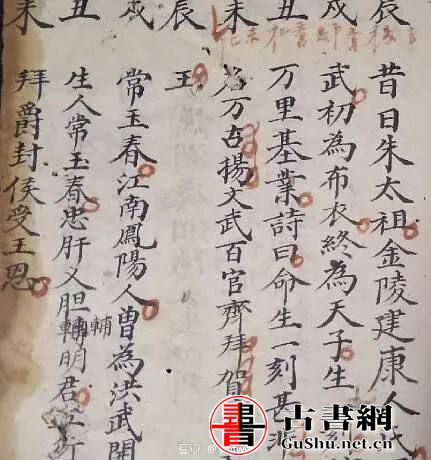 辰戌丑未辰戌丑未
昔日朱太祖金陵建康人氏
武初為布衣終為天子生
万里基業詩曰命生一刻甚非
名万古揚文武百官齊拜賀
王
常玉春江南鳳陽人曾為洪武開
生人常玉春忠肝义胆輔明君
輔
拜爵封侯受王恩
書
古書網
GuShu.net.cn